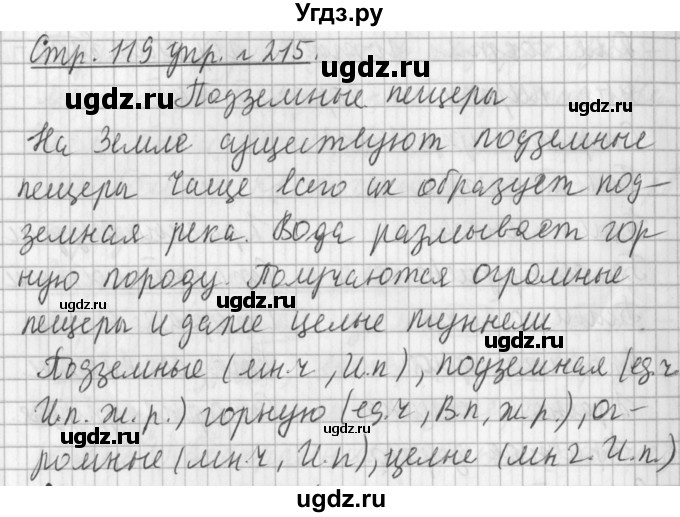 Угдз.ру
Стр. 119 упр. № 215.
Подземные пещеры
На Земле существуют подземные
пещеры Чаще всего их образует под-
земная река. Вода размывает гор
ную породу. Получаются огромные
пещеры и даже целые туннели
Подземные (мн.ч, И.п), подземная (ед.ч
И.п. ж.р.) горную (ед.ч, В.п, ж.р.), ог-
ромные (мн.ч, И.п), целые (мн г. И.п.)
ugdz.ru
ugdz.ru
ugdz.ru
ugdz.ru
ugdz.ru
ugdz.ru
ugdz.ru
ugdz.ru
ugdz.ru
ugdz.ru
ugdz.ru
ugdz.ru
ugdz.ru
ugdz.ru